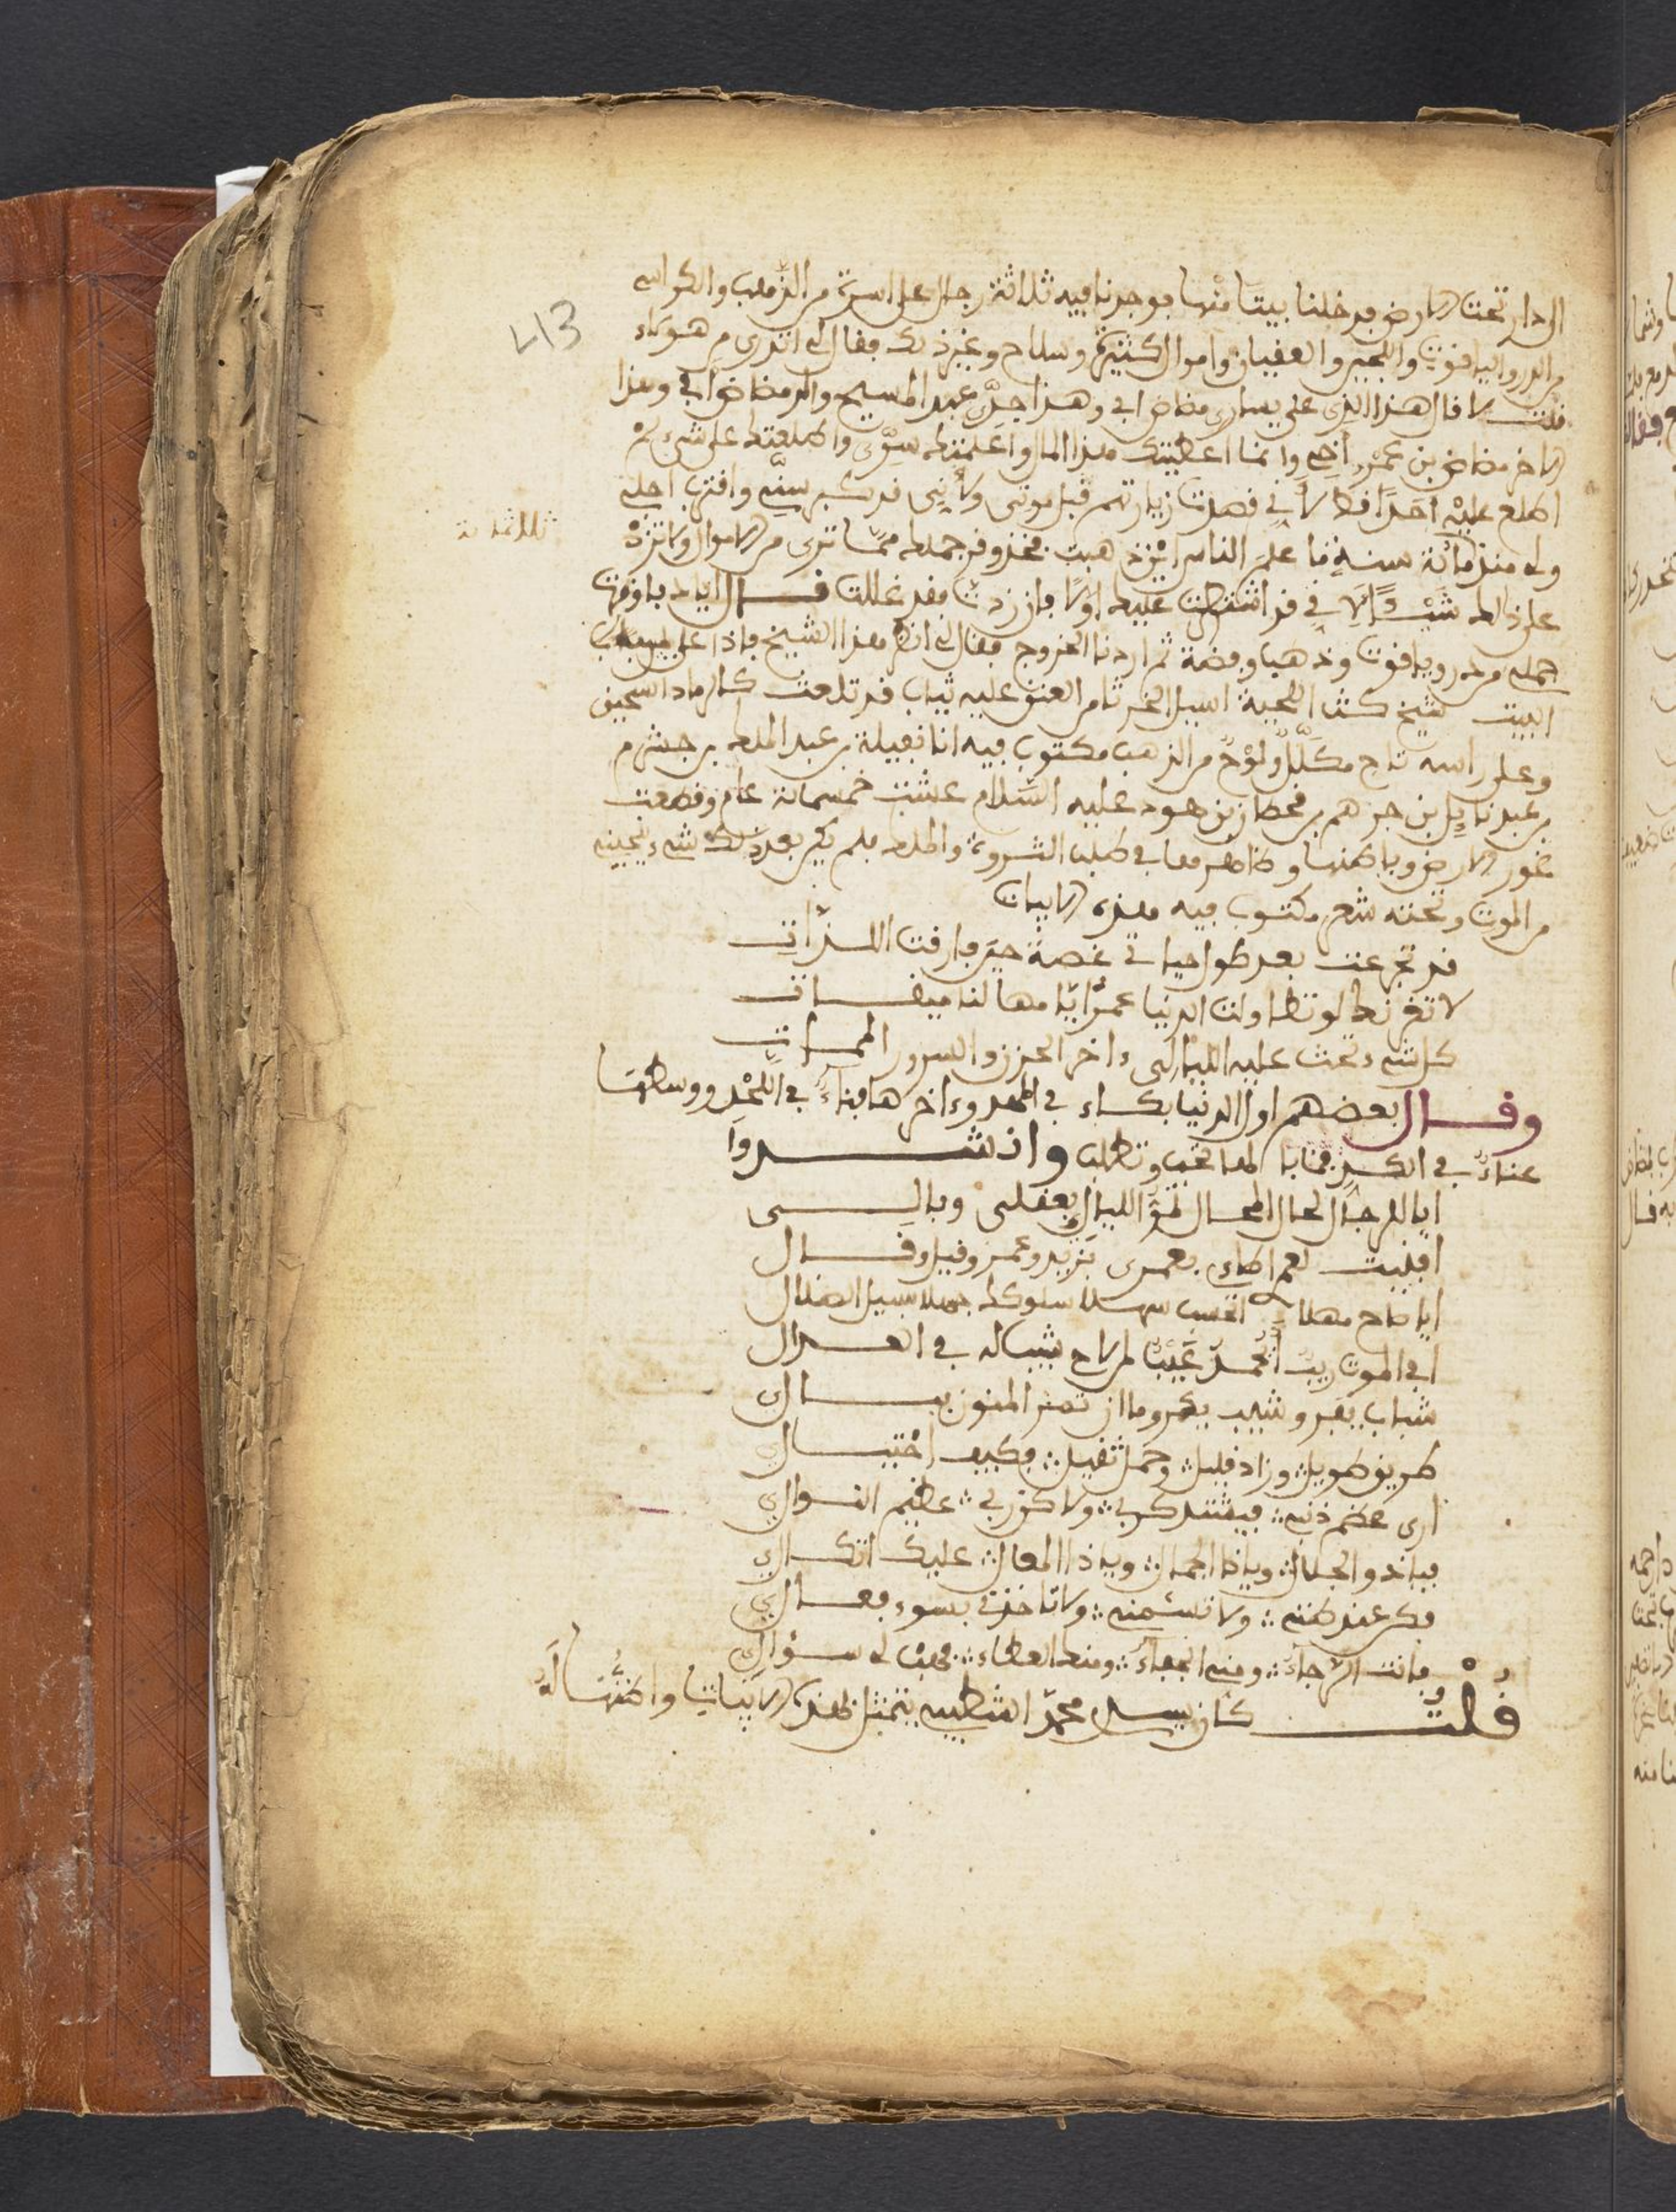 الدار تحت الارض فدخلنا بيتا منها فوجدنا فيه ثلاثة رجال على اسرة من الذهب والكراسي
من الدر والياقوت واللجين والعقيان واموال كثيرة وسلاح وغير ذلك فقال لي اتدري من هؤلاء
قلت لا قال هذا الذي على يساري مضاض ابي وهذا جدي عبد المسيح والد مضاض ابي وهذا
الاخر مضاض بن عمرو اخي وانما اعطيتك هذا المال واعلمتك سري واطلعتك على شيء لم
اطلع عليه احدا قط لاني قصدت زيارتهم قبل موتي ولانني قد كبر سني واقترب اجلي
ولي منذ مائة سنة ما علم الناس اين ذهبت فخذ وقر جملك مما ترى من الاموال ولا تزد
على ذلك شيئا لاني قد اشترطت عليك اولا فان زدت فقد غللت قال اياد فاوقرت
جملي من در وياقوت وذهب وفضة ثم اردنا الخروج فقال لي انظر هذا الشيخ فاذا على باب
البيت شيخ كث اللحية اسيل الخد تام العنق عليه ثياب قد تلفت كالرماد السحيق
وعلى راسه تاج مكلل ولوح من الذهب مكتوب فيه انا نفيلة بن عبد الملك بن جشرم
بن عبد ياليل بن جرهم بن قحطان بن هود عليه السلام عشت خمسمائة عام وقطعت
غور الارض وباطنها وظاهرها في طلب الثروة والملك فلم يكن بعد ذلك شيء ينجيني
من الموت وتحته شعر مكتوب فيه هذه الابيات
قد تجرعت بعد طول حياتي غصة حين فارقت اللذات
لا تغرنك لو تطاولت الدنيا عمرا ايامها لنا ميقات
كل شيء تحث عليه الليالي واخر الحزن والسرور الممات
وقال بعضهم اول الدنيا بكاء في المهد وءاخرها فناء في اللحد ووسطها
عناء في الكد فما بالها تحب وتطلب وانشدوا
ايا للرجال لحال المحال لمر الليالي بعقلي وبالي
افنيت عمري بزيد وعمرو وقيل وقال
ايا صاح مهلا اتحسب سهلا سلوكك جهلا سبيل الضلال
افي الموت ريب
شباب يفر وشيب يكر وما ان تمر المنون ببال
طريق طويل وزاد قليل وحمل ثقيل فكيف احتيالي
ارى عظم ذنبي فيشتد كربي ولاكن ربي عظيم النوال
فياذو الجلال وياذا الجمال وياذا المعال عليك اتكالي
فكن عند ظني ولا تسئمني ولا تاخذني بسوء فعالي
فانت الرجاء ومني الجفاء ومنك العطاء فهب لي سؤالي
قلت كان سيدي محمد الشطيبي يتمثل بهذه الابيات واظنها له
ثلاثمائة
43